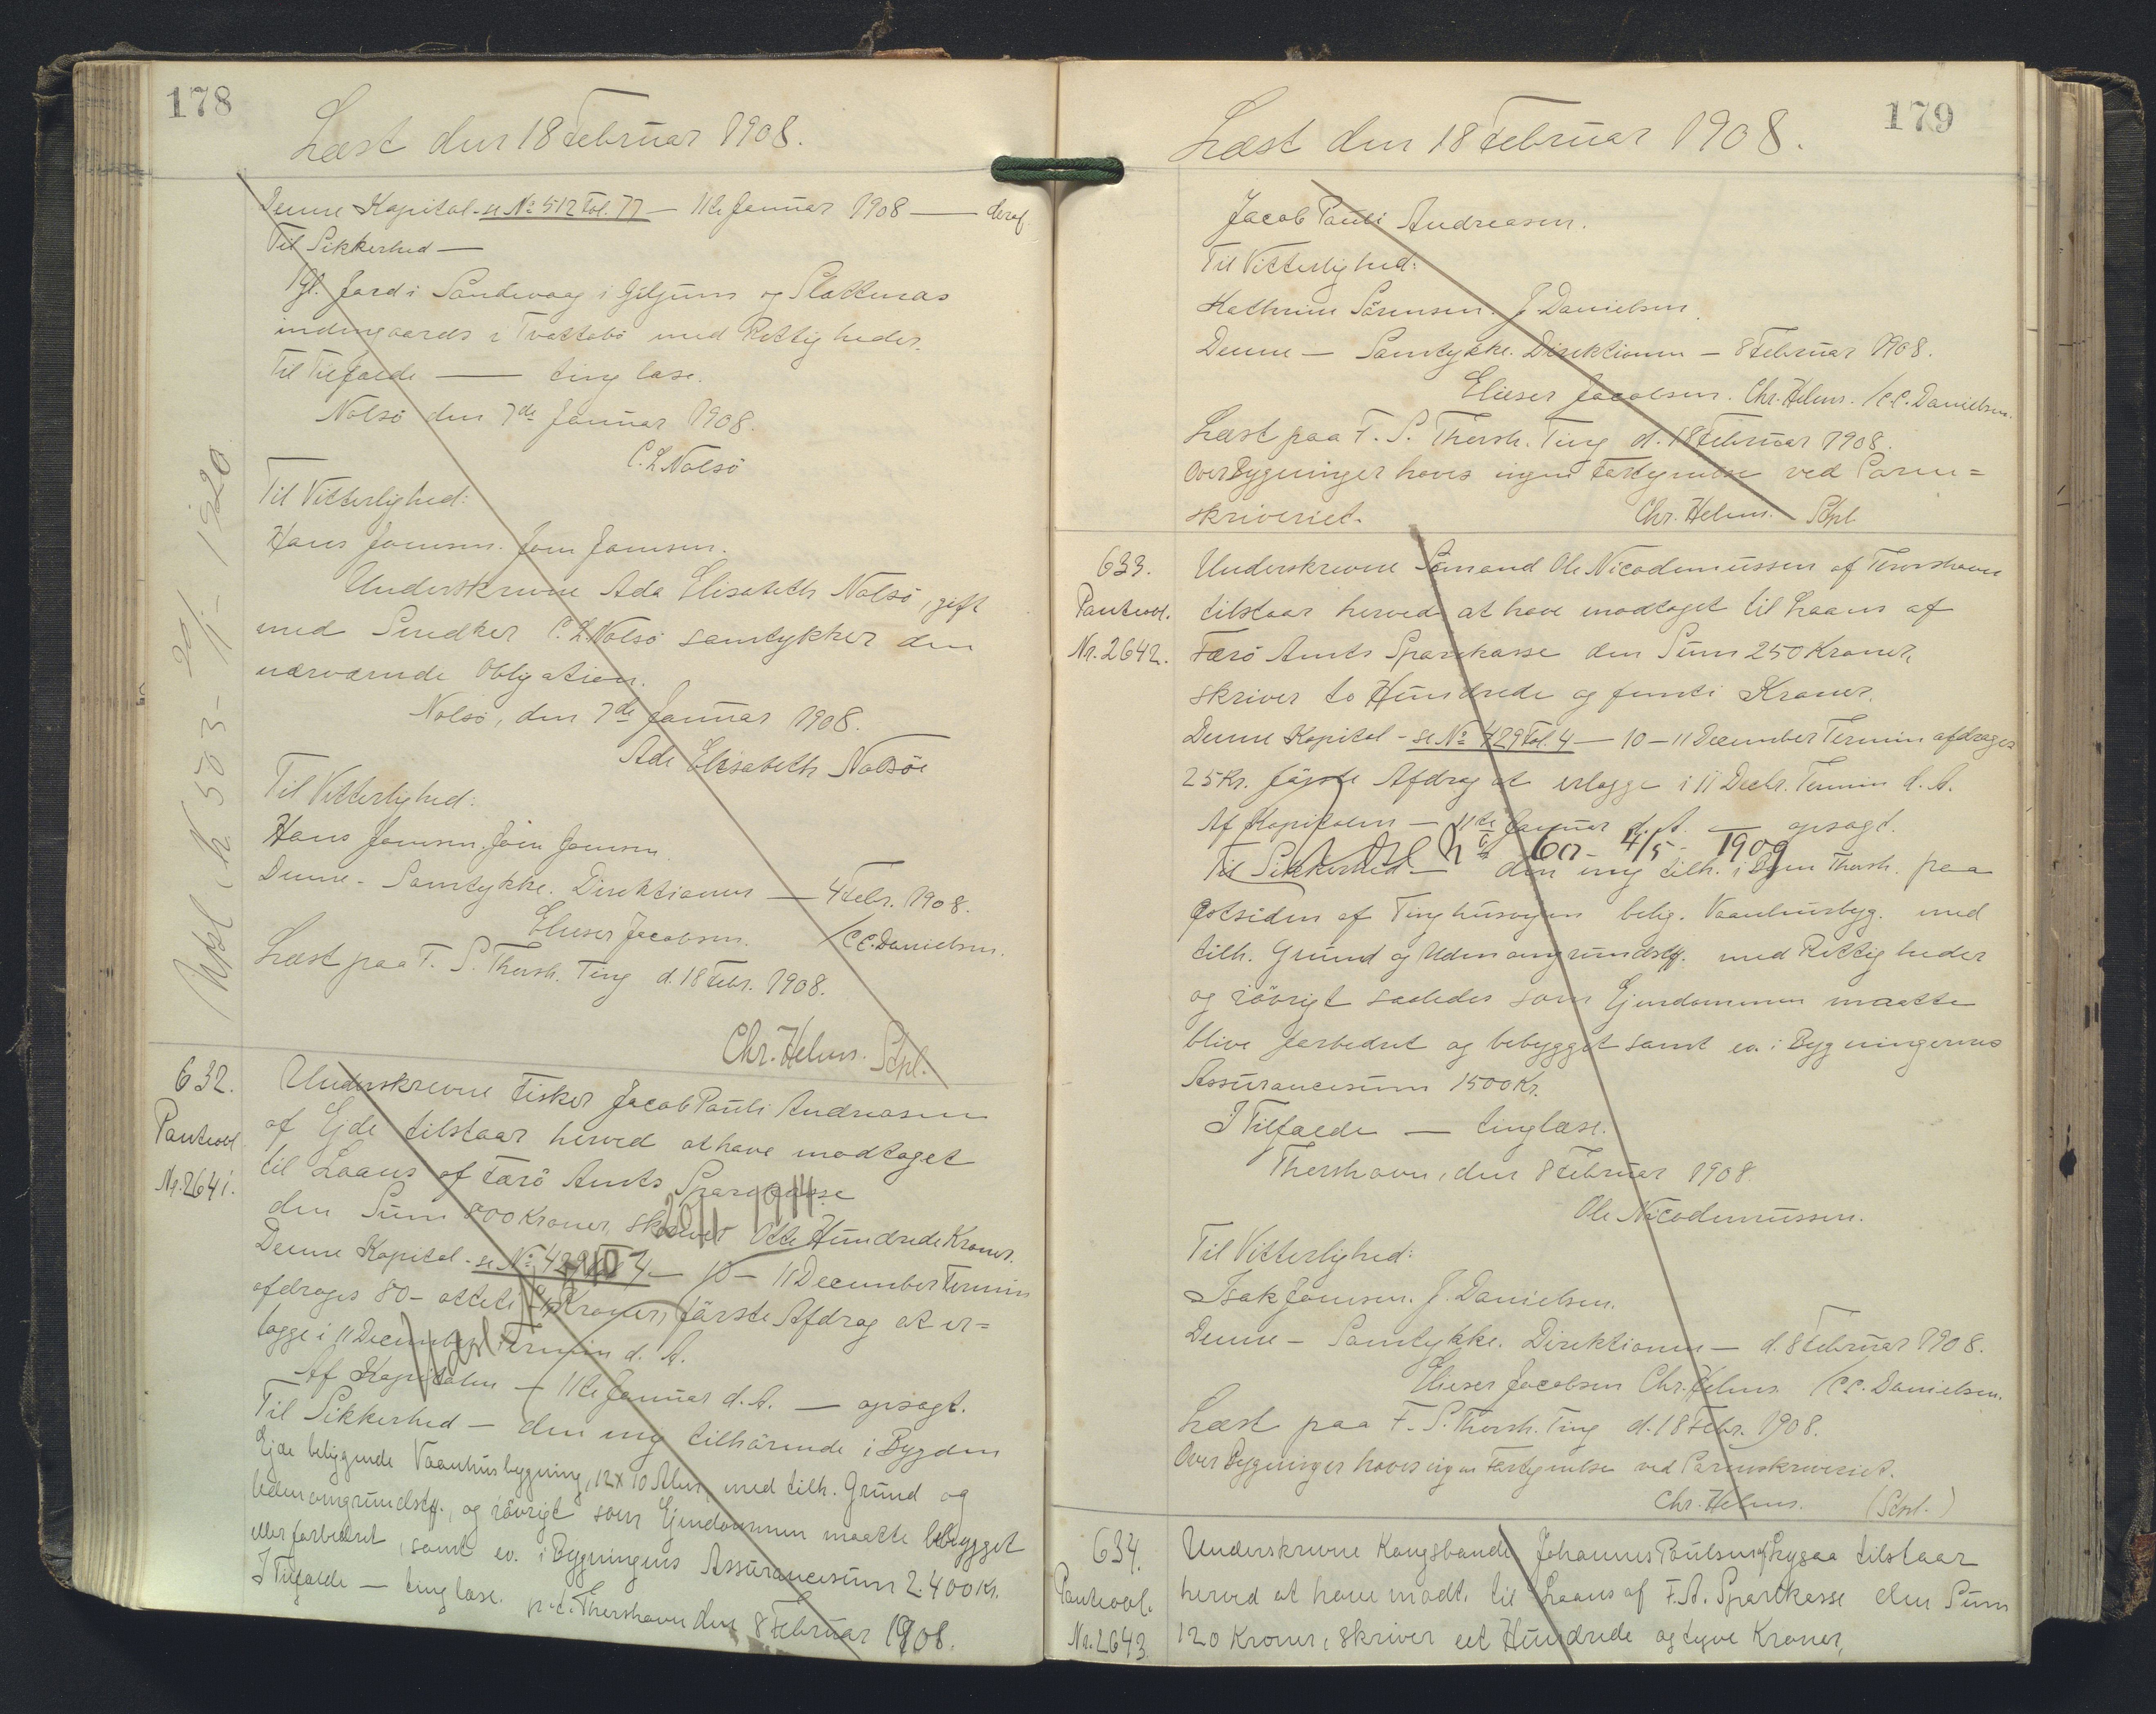 178
Læst den 18 Februar 1908.
Denne Kapital - se No 512 Fol. 77 — 11te Januar 1908 — deraf
Til Sikkerhed —
1 Gl. Jord i Sandevaag i Giljum og
indengaards i med Rettigheder.
Til Tilfælde — ting læse.
Nolsö den 7de Januar 1908.
C. L. Nolsö
Til Vitterlighed:
Hans Joensen. Joen Joensen.
Underskrevne Ada Elisabeth Nolsö, gift
med Snedker C. L. Nolsö samtykker den
nærværende Obligation.
Nolsö, den 7de Januar 1908.
Ada Elisabeth Nolsöe
Til Vitterlighed:
Hans Joensen. Joen Joensen
Denne - Samtykke. Direktionen — 4 Febr. 1908.
Elieser Jacobsen. /C.C. Danielsen.
Læst paa F. S. Thorsh. Ting d. 18 Febr. 1908.
Chr. Helms. Stpl.
20/1 - 1920
632.
Panteobl.
Nr. 2641.
Underskrevne Fisker Jacob Pauli Andreasen
af Ejde tilstaar herved at have modtaget
til Laans af Færö Amts Sparekasse
den Sum 800 Kroner, skriver Otte Hundrede Kroner.
Denne Kapital - se No 429 Fol. 4 — 10 — 11 December Termin
afdrages 80 - otteti - Kroner, förste Afdrag at er=
lægge i 11 December Termin d. A.
Af Kapitalen — 11te Januar d. A. — opsagt.
Til Sikkerhed — den mig tilhörende i Bygden
Ejde beliggende Vaanhusbygning, 12 x 10 Alen, med tilh. Grund og
Udenomgrundstk., og iövrigt som Ejendommen maatte bebygget
eller forbedret, samt ev. i Bygningens Assurancesum 2.400 Kr.
I Tilfælde — ting læse. p.t. Thorshavn den 8 Februar 1908.
179
Læst den 18 Februar 1908.
Jacob Pauli Andreasen.
Til Vitterlighed:
Kathrine Sörensen. J. Danielsen.
Denne — Samtykke. Direktionen — 8 Februar 1908.
Elieser Jacobsen. Chr. Helms. /C.C. Danielsen.
Læst paa F. S. Thorsh. Ting d. 18 Februar 1908.
Over Bygninger haves ingen Fortegnelse ved Soren=
skriveriet.
Chr. Helms. Stpl
633.
Panteobl.
Nr. 2642.
Underskrevne Sömand Ole Nicodemussen af Thorshavn
tilstaar herved at have modtaget til Laans af
Færö Amts Sparekasse den Sum 250 Kroner,
skriver to Hundrede og femti Kroner.
Denne Kapital - se No 429 Fol. 4 — 10 — 11 December Termin afdrages
25 Kr. förste Afdrag at erlægge i 11 Decbr. Termin d. A.
Af Kapitalen — 11te Januar d. A. — opsagt.
4/5 - 1909
Til Sikkerhed — den mig tilh. i Byen Thorsh. paa
Östsiden af Tinghusvejen belig. Vaanhusbyg. med
tilh. Grund og Udenomgrundstk. med Rettigheder
og iövrigt saaledes som Ejendommen maatte
blive forbedret og bebygget samt ev. i Bygningernes
Assurancesum 1500 Kr.
I Tilfælde — tinglæse.
Thorshavn, den 8 Februar 1908.
Ole Nicodemussen.
Til Vitterlighed:
Isak Joensen. J. Danielsen.
Denne — Samtykke. Direktionen — d. 8 Februar 1908.
Elieser Jacobsen Chr. Helms /C.C. Danielsen.
Læst paa F. S. Thorsh. Ting d. 18 Febr. 1908.
Over Bygninger haves ingen Fortegnelse ved Sorenskriveriet.
Chr. Helms. (Stpl.)
634.
Panteobl.
Nr. 2643.
Underskrevne Kongsbonde Johannes Poulsen af tilstaar
herved at have modt. til Laans af F. A. Sparekasse den Sum
120 Kroner, skriver eet Hundrede og tyve Kroner,